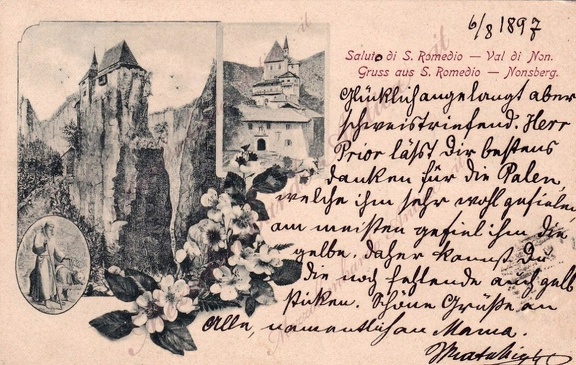 6/8 1897
Saluto di S. Romedio — Val di Non.
Gruss aus S. Romedio — Nonsberg.
Glücklich angelangt aber
schweistriefend. Herr
Prior lässt Dir bestens
danken für die Palen,
welche ihm sehr wohl gefielen,
am meisten gefiel ihm die
gelbe, daher kannst Du
die noch fehlende auch gelb
sticken. Schöne Grüße an
Alle, namentlich an Mama.